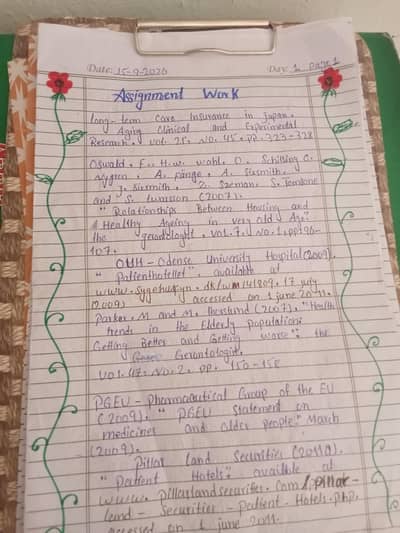 Date: 15-9-2020 Day: 1 page 1
Assignment Work
long-term Care Insurance in Japan.
Aging Clinical and Experimental
Research. vol. 25, No. 45, pp. 323-328
Oswald, F., H.w. wahl, O. Schilling C.
Nygren, A. Fänge, A. Sixsmith,
J. Sixsmith, Z. Szeman, S. Tomsone
and S. Iwarsson (2007).
"Relationships Between Housing and
Healthy Ageing in very old Age".
the gerontologist, vol. 7, No. 1, pp. 96-
107.
"OUH - Odense University Hospital (2009).
"Patienthotellet", available at
www. Sygehusfyn. dk/wm141809, 17 july
(2009) accessed on 1 june 2011.
Parker, M and M. Thorslund (2007), "Health
trends in the Elderly population:
Getting Better and Getting worse": the
Gerontologist,
vol. 47, No. 2, pp. 150-158
PGEU - Pharmaceutical Group of the EU
(2009). "PGEU Statement on
medicines and older people." March
(2009).
Pillar land Securities (2011a).
"Patient Hotels": available at
www. Pillarlandsecurities. Com/Pillar-
land - Securities - patient - Hotels. php.
accessed on 1 june 2011.